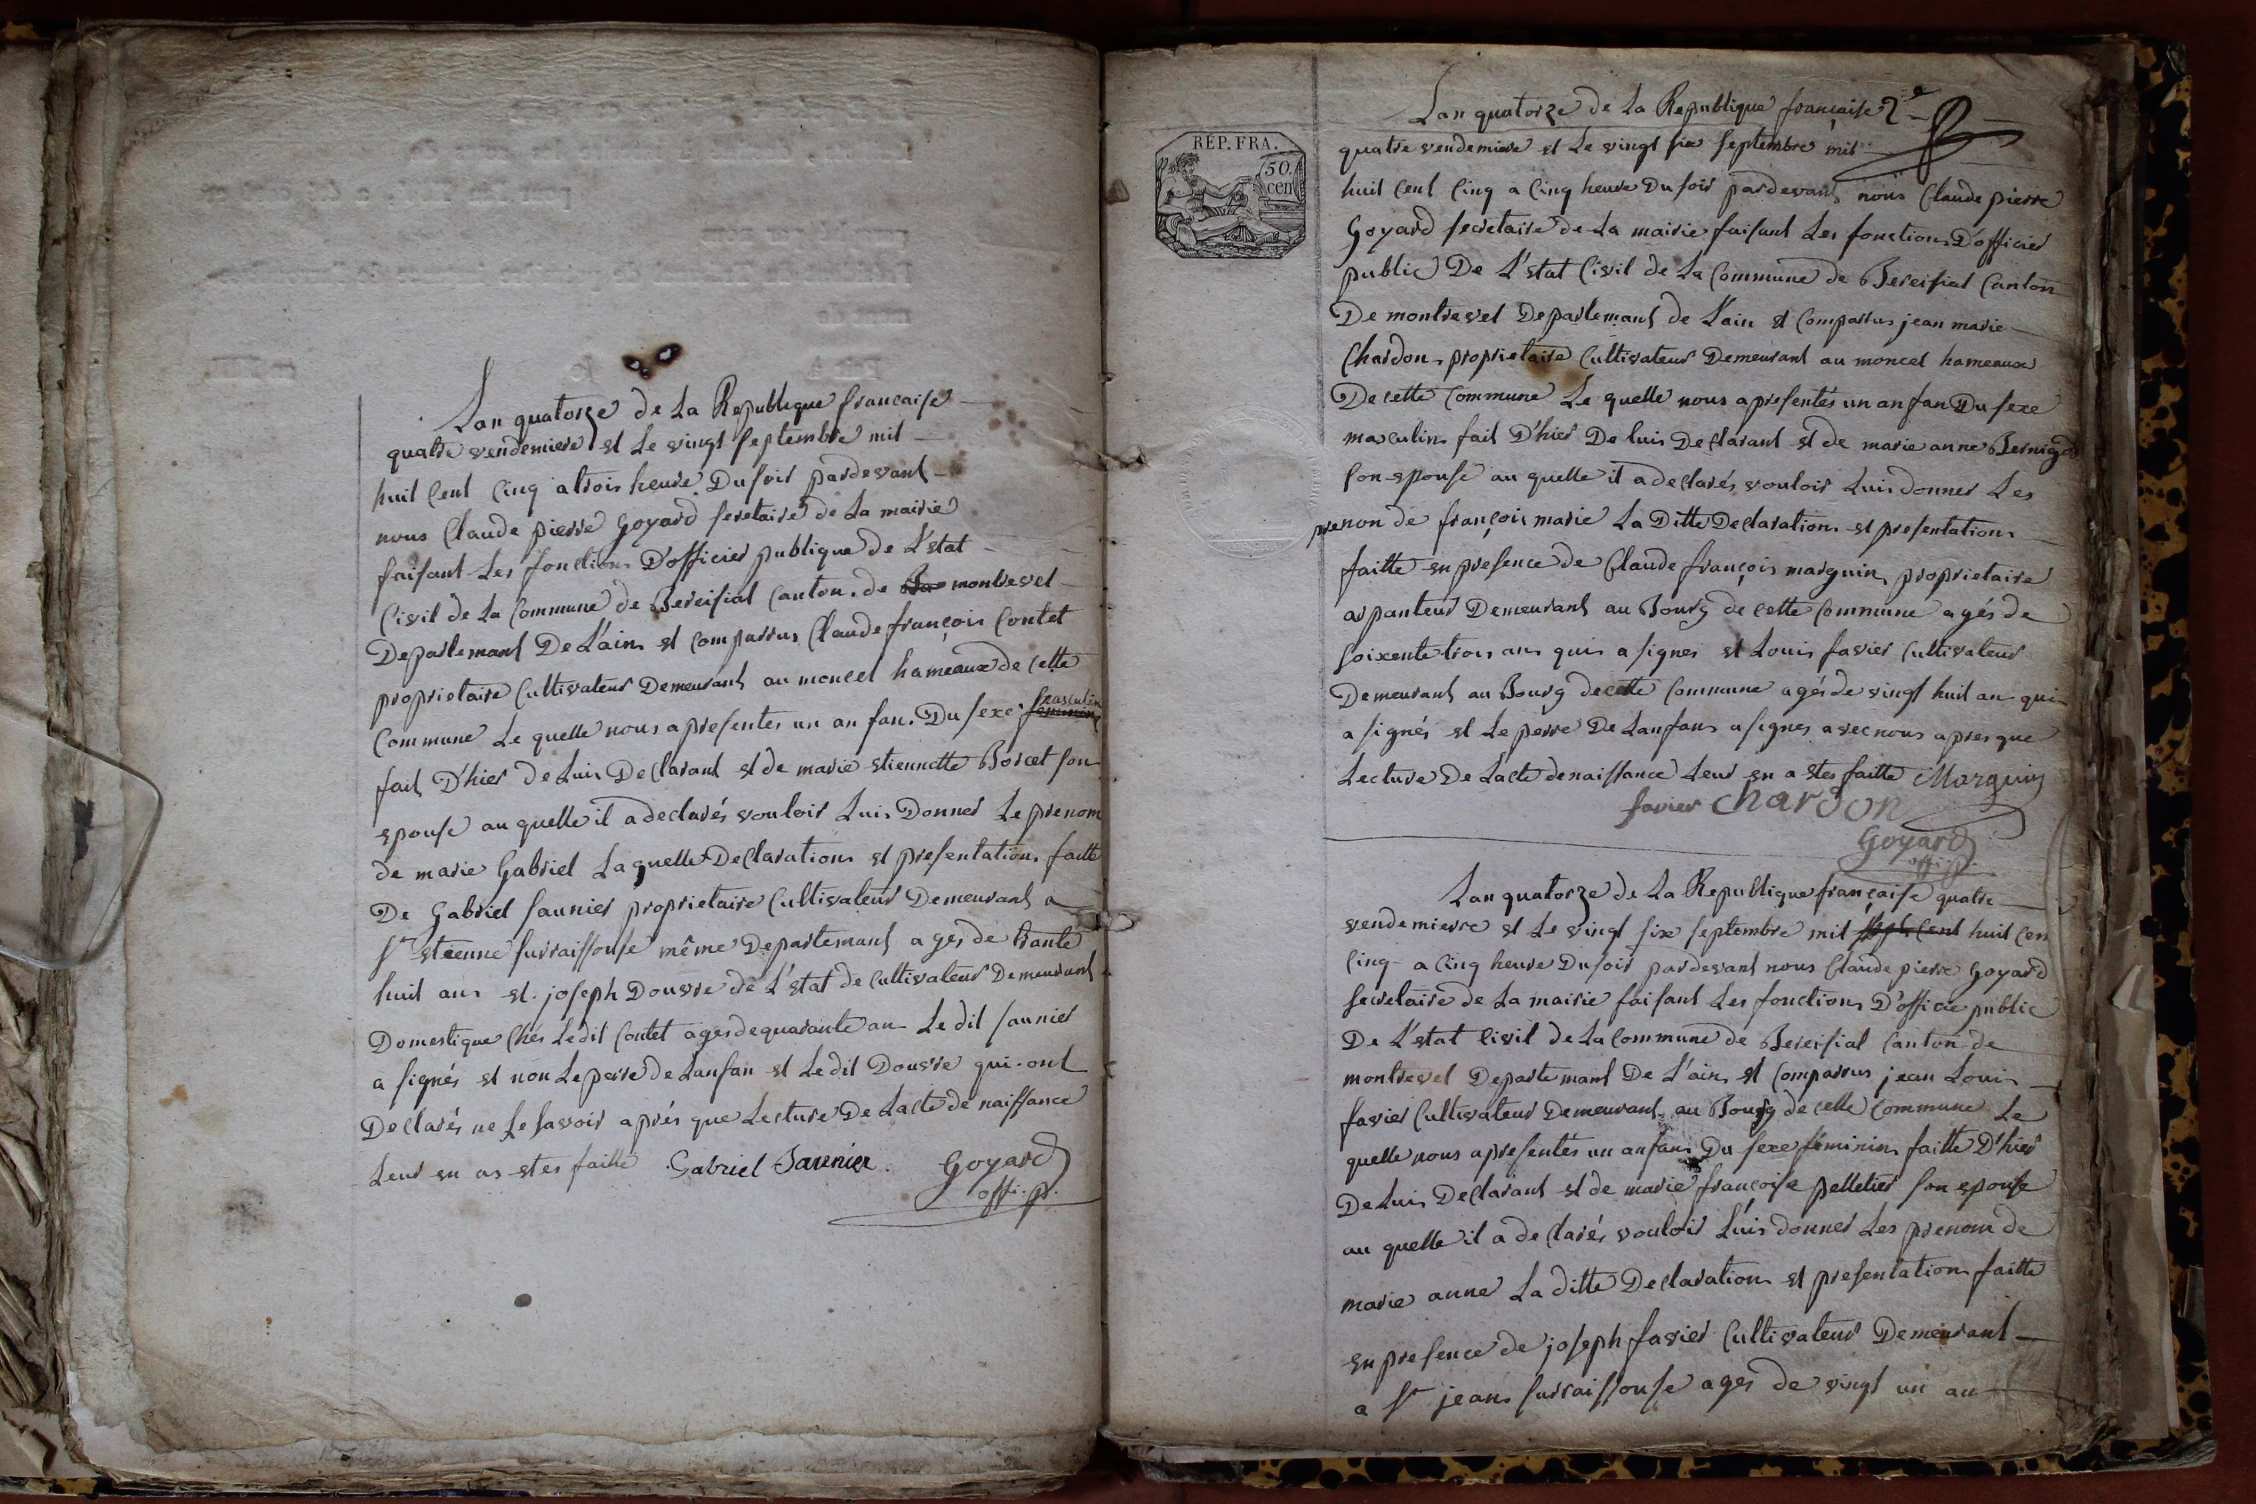 Lan quatorze de La Republique francaise
quatre vendemiere et Le vingt septembre mil
huit Cent Cinq a trois heure Du soir pardevant
nous Claude pierre Goyard seretaire de La mairie
faisant Les fonction D'officier publique de L'etat
Civil de La Commune de Bereisiat Canton de montrevel
Departemant De L'ain et Comparus Claude françois Contet
proprietaire Cultivateur Demeurant au moncel hameaux de cette
Commune Le quelle nous apresentes un anfan Du sexe masculin
fait D'hier de Luis Declarant et de marie etiennette Borcet son
epouse au quelle il adeclarés vouloir Luis Donner Le prenom
de marie Gabriel Laquelle Declaration et presentation faitte
De Gabriel saunier proprietaire Cultivateur Demeurant a
St etienne surraissouse même Departemant ages de trante
huit ans et joseph Douvre de L'etat de Cultivateur Demeurant
Domestique Chés Ledit Contet ages de quarante an Le dit saunier
a signés et non Le pere de Lanfan et Le dit Douvre qui ont
Declarés ne Le savoir après que Lecture De Lacte de naissance
Leur en as etes faitte Gabriel Saunier Goyard
offi. p.
Lan quatorze de La Republique française
quatre vendemiere et Le vingt six septembre mil
REP. FRA.
50.
cen
huit Cent Cinq a Cinq heure Du soir pardevant nous Claude pierre
Goyard secretaire de La mairie faisant Les fonction D'officier
public De L'etat Civil de La Commune de Bereisiat Canton
De montrevel Departemant de L'ain et Comparus jean marie
Chardon proprietaire Cultivateur Demeurant au moncel hameaux
De cette Commune Le quelle nous apresentés un anfan Du sexe
masculin fait D'hier De luis Declarant et de marie anne
son epouse au quelle il adeclarés vouloir Luis donner Les
prenon de françois marie La Ditte Declaration et presentation
faitte en presence de Claude françois marguin proprietaire
arpanteur Demeurant au Bourg de cette Commune agés de
soixente trois ans quis a signes et Louis favier Cultivateur
Demeurant au Bourg de cette Commune agés de vingt huit an quis
a signés et Le perre De Lanfan a signes avec nous apres que
Lecture De Lacte de naissance Leur en a etes faitte Marguin
favier Chardon
Goyard
offi. p.
Lan quatorze de La Republique française quatre
vendemierre et Le vingt six septembre mil sept Cent huit Cen
Cinq a Cinq heure Du soir pardevant nous Claude pierre Goyard
secretaire de La mairie faisant Les fonction D'officie public
De L'etat Civil de La Commune de Bereisiat Canton de
montrevel Departemant De L'ain et Comparus jean Louis
favier Cultivateur Demeurant au Bourg de cette Commune Le
quelle nous apresentés un anfan Du sexe féminin faitte D'hier
De Luis Declarant et de marie françoise pelletier son epouse
au quelle il a declarés vouloir Luis donner Les prenom de
marie anne La ditte Declaration et presentation faitte
en presence de joseph favier Cultivateur Demeurant
a St jean surraissouse ages de vingt un an